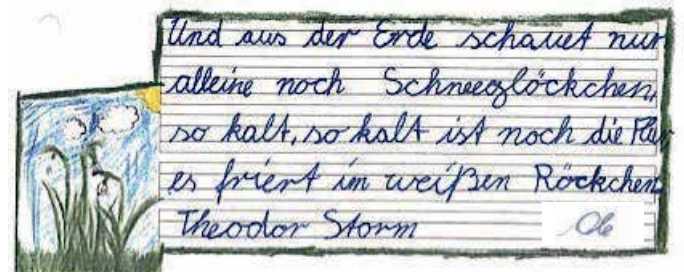 Und aus der Erde schauet nur
alleine noch Schneeglöckchen,
so kalt, so kalt ist noch die Flur
es friert im weißen Röckchen
Theodor Storm
Ole